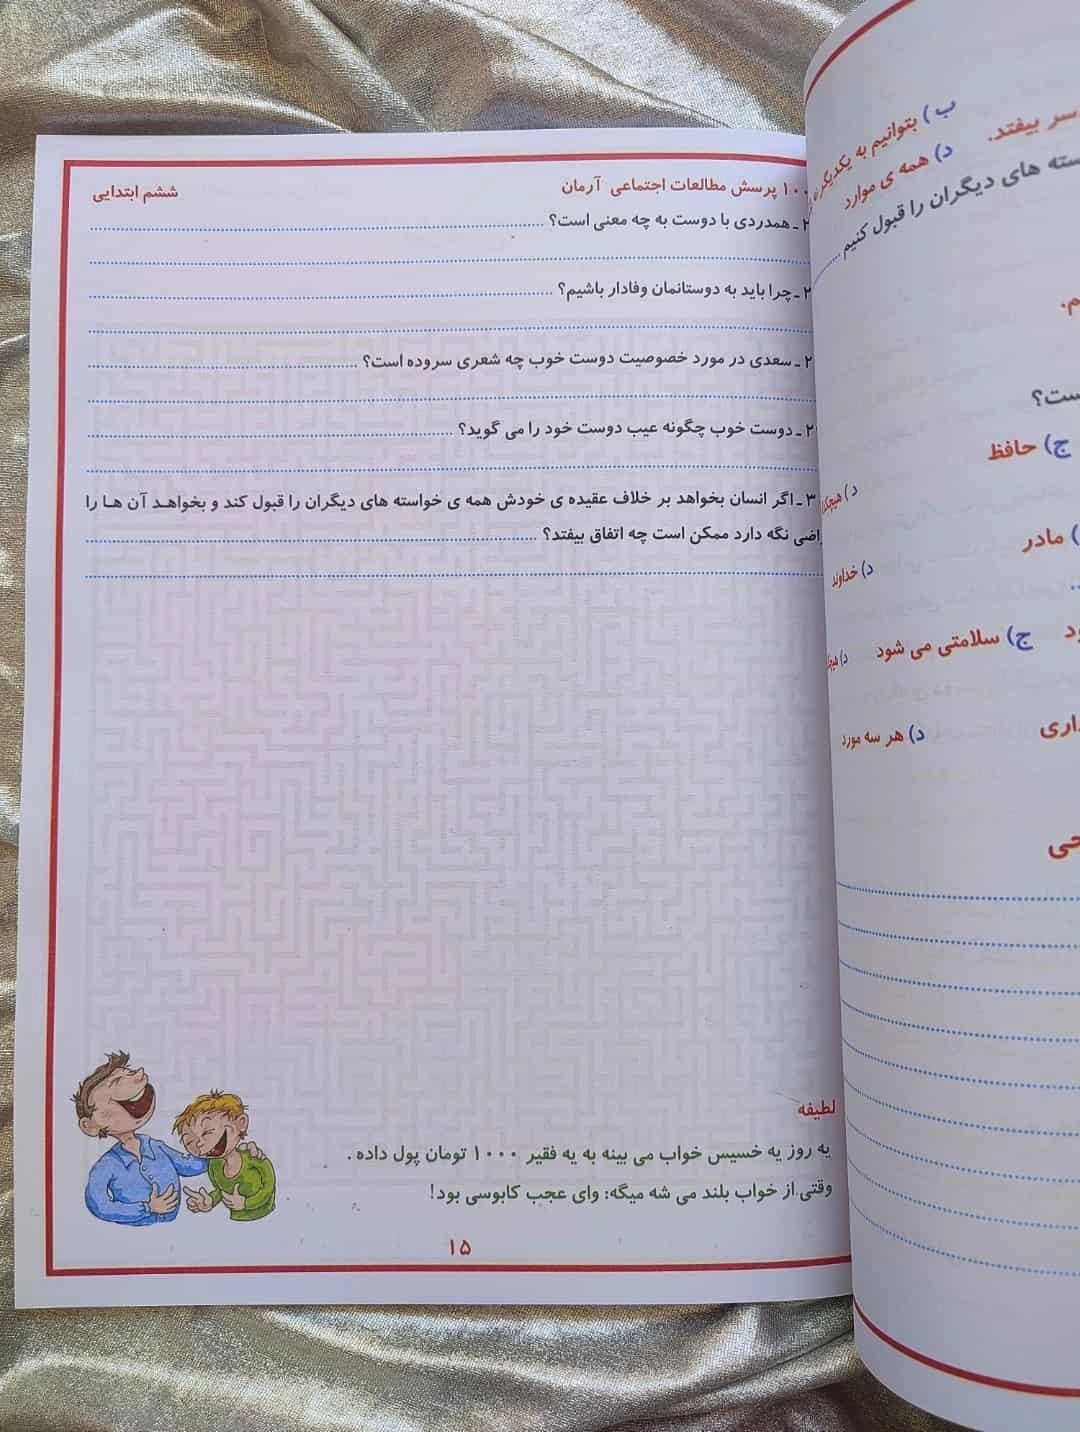 پرسش مطالعات اجتماعی آرمان
ششم ابتدایی
ـ همدردی با دوست به چه معنی است؟
ـ چرا باید به دوستانمان وفادار باشیم؟
ـ سعدی در مورد خصوصیت دوست خوب چه شعری سروده است؟
ـ دوست خوب چگونه عیب دوست خود را می گوید؟
ـ اگر انسان بخواهد بر خلاف عقیده ی خودش همه ی خواسته های دیگران را قبول کند و بخواهـد آن هـا را
نگه دارد ممکن است چه اتفاق بیفتد؟
لطیفه
یه روز یه خسیس خواب می بینه به یه فقیر ۱۰۰۰ تومان پول داده .
وقتی از خواب بلند می شه میگه: وای عجب کابوسی بود!
۱۵
سر بیفتد.
ب) بتوانیم به یکدیگر
د) همه ی موارد
های دیگران را قبول کنیم
ج) حافظ
مادر
د) خداوند
ج) سلامتی می شود
د) هر سه مورد